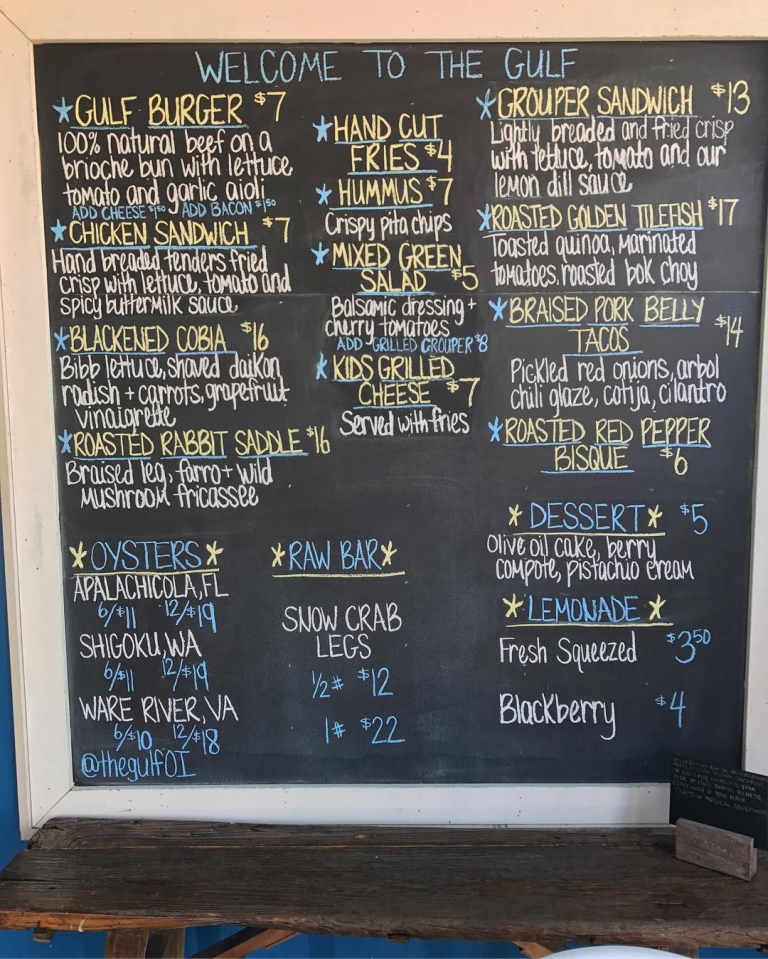 WELCOME TO THE GULF
*GULF BURGER $7
100% natural beef on a
brioche bun with lettuce
tomato and garlic aioli
ADD CHEESE $1.50 ADD BACON $1.50
*CHICKEN SANDWICH $7
Hand breaded tenders fried
crisp with lettuce, tomato and
spicy buttermilk sauce
*BLACKENED COBIA $16
Bibb lettuce, shaved daikon
radish + carrots, grapefruit
vinaigrette
*ROASTED RABBIT SADDLE $16
Braised leg, farro + wild
mushroom fricassee
*HAND CUT
FRIES $4
*HUMMUS $7
Crispy pita chips
*MIXED GREEN
SALAD $5
Balsamic dressing +
cherry tomatoes
ADD GRILLED GROUPER $8
*KIDS GRILLED
CHEESE $7
Served with fries
*GROUPER SANDWICH $13
Lightly breaded and fried crisp
with lettuce, tomato and our
lemon dill sauce
*ROASTED GOLDEN TILEFISH $17
Toasted quinoa, marinated
tomatoes, roasted bok choy
*BRAISED PORK BELLY
TACOS $14
Pickled red onions, arbol
chili glaze, cotija, cilantro
*ROASTED RED PEPPER
BISQUE $6
*OYSTERS*
APALACHICOLA, FL
6/$11 12/$19
SHIGOKU, WA
6/$11 12/$19
WARE RIVER, VA
6/$10 12/$18
@thegulfOI
*RAW BAR*
SNOW CRAB
LEGS
1/2# $12
1# $22
*DESSERT* $5
Olive oil cake, berry
compote, pistachio cream
*LEMONADE*
Fresh Squeezed $3.50
Blackberry $4